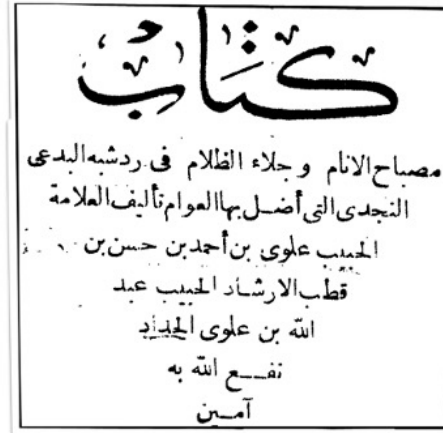 كتاب
مصباح الانام وجلاء الظلام فى رد شبه البدعى
النجدى التى أضل بها العوام تأليف العلامة
الحبيب علوى بن أحمد بن حسن بن
قطب الارشاد الحبيب عبد
الله بن علوى الحداد
نفع الله به
آمين